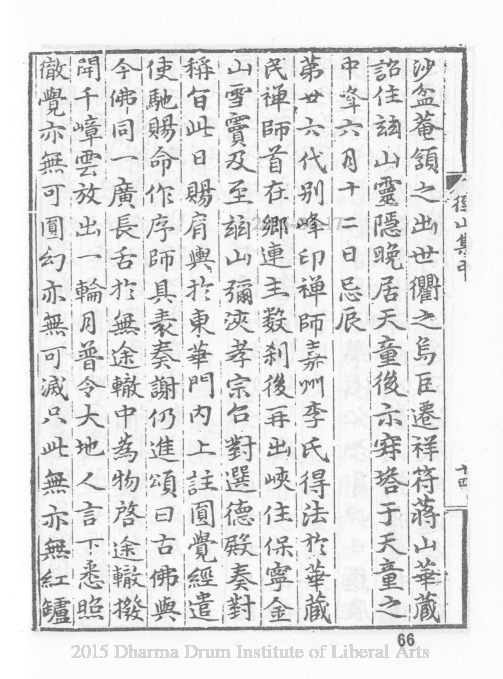 沙盆菴頷之出世衢之烏臣遷祥符蔣山華藏
詔住玆山靈隱晚居天童後示寂塔于天童之
中峯六月十二日忌辰
第廿六代別峰印禪師嘉州李氏得法於華藏
民禪師首在鄉連主数刹後再出峽住保寧金
山雪竇及至玆山彌浹孝宗召對選德殿奏對
稱旨此日賜肩輿於東華門內上註圓覺經遣
使馳賜命作序師具表奏謝仍進頌曰古佛與
今佛同一廣長舌於無途轍中為物啓途轍撥
開千嶂雲放出一輪月普令大地人言下悉照
徹覺亦無可圓幻亦無可滅只此無亦無紅鑪
徑山集中
十四
66
2015 Dharma Drum Institute of Liberal Arts